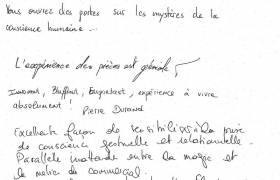 Vous ouvrez des portes sur les mystères de la
conscience humaine...
L'expérience des pièces est géniale
Innovant, Bluffant, Emportant, expérience à vivre
absolument! Pierre Durand
Excellente façon de sensibiliser à la prise
de conscience gestuelle et relationnelle.
Parallèle entre la magie et
le métier de commercial.